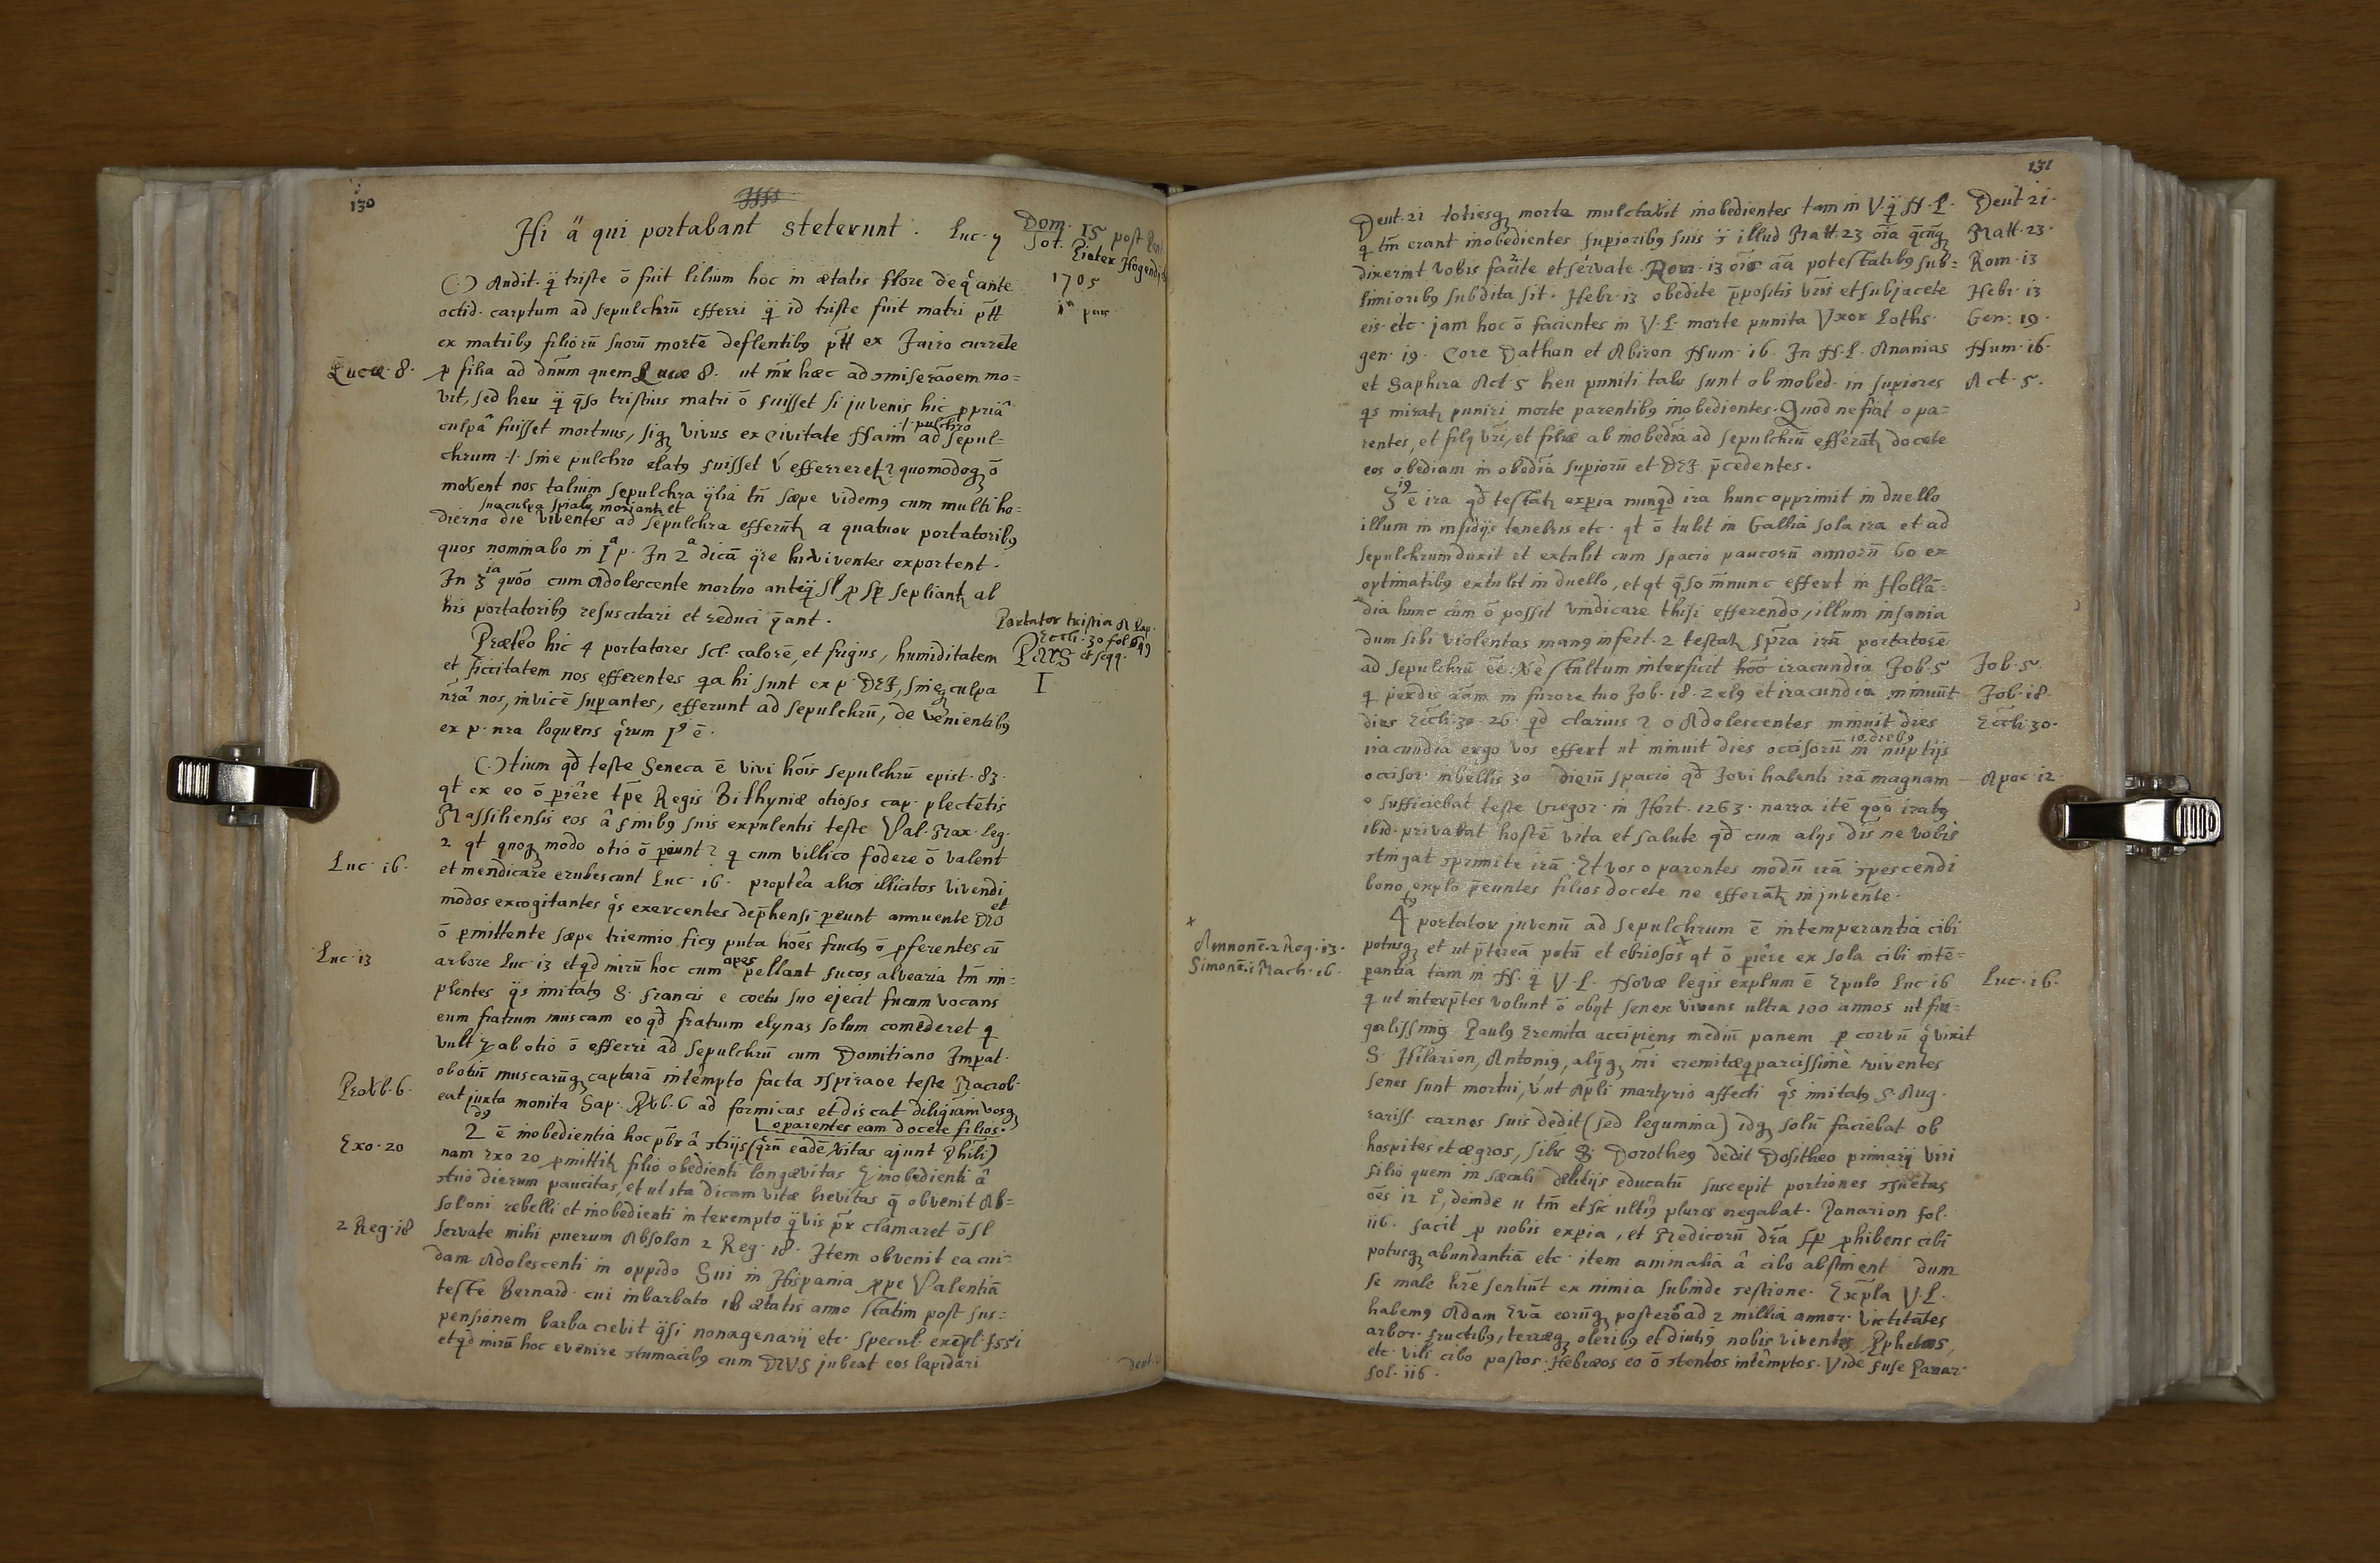 130
Hi ä qui portabant steterunt. Luc. 7
Dom. 15 post
1705
(.) Audit. q̄ triste ō fuit lilium hoc in ætatis flore de q̂ ante
octid. carptum ad sepulchrū efferri q̄ id triste fuit matri
ex matribꝰ filiorū suorū mortē deflentibꝰ ex Jairo currēte
Lucæ. 8.
filia ad dn̄um quem Lucæ 8. ut hæc ad mo=
vit, sed heu q̄ q̄so tristius matri ō fuisset si juvenis hic ꝓpriâ
culpâ fuisset mortuus, sicꝫ vivus ex civitate Naim ad sepul=
chrum .|. sine pulchro elatꝰ fuisset efferretꝛ? quomodoqꝫ ō
movent nos talium sepulchra q̄lia tn̄ sæpe videmꝰ cum multi ho=
sua culpa moriantꝛ et
dierno die viventes ad sepulchra efferūtꝛ a quatuor portatoribꝰ
quos nominabo in Iᵃ p. In 2ᵃ dicā q̄re hi viventes exportent.
In 3ia quōo cum Adolescente mortuo anteq̄ sepliantꝛ ab
his portatoribꝰ resuscitari et reduci q̄ant.
Portator tristia
Eccli. 30 fol
et seqq.
PARS
I
Prætēo hic 4 portatores scl. calorē, et frigus, humiditatem
et siccitatem nos efferentes qa hi sunt ex p. DEI, sineqꝫ culpa
nr̄â nos, invicē supantes, efferunt ad sepulchrū, de venientibꝰ
ex p. nra loquens q̂rum Iꝰ ē.
(.)tium qd̄ teste Seneca ē vivi hōis sepulchrū epist. 83.
qt ex eo ō piêre tp̄e Regis Bithyniæ otiosos cap. plectētis
Massiliensis eos â finibꝰ suis expulentis teste Val. Max. leg.
2 qt quoqꝫ modo otio ō peunt? q cum villico fodere ō valent
Luc. 16.
et mendicare erubescunt Luc. 16. propteâ alios illicitos vivendi
modos excogitantes q̂s exercentes dep̄hensi peunt annuente DEO et
ō pmittente sæpe triennio ficꝰ puta hōes fructꝰ ō pferentes cū
Luc. 13
arbore Luc. 13 et qd̄ mirū hoc cum apes pellant fucos alvearia tm̄ im=
plentes q̄s imitatꝰ S. Francis e coetu suo ejecit fucum vocans
eum fratrum muscam eo qd̄ fratrum elynas solum comederet q
vult ab otio ō efferri ad sepulchrū cum Domitiano Impat.
obotiū muscarūqꝫ capturā intêmpto facta teste Macrob.
Provb. 6.
eat juxta monita Sap. Pvb. 6 ad formicas et discat diligiam vosqꝫ
o parentes eam docete filios.
2dꝰ ē inobedientia hoc â (q̂rū eadē vitas ajunt Phili)
Exo. 20
nam Exo 20 pmittitꝛ filio obedienti longævitas inobedienti â
dierum paucitas, et ut ita dicam vitæ brevitas q̄ obvenit Ab=
soloni rebelli et inobedienti interempto q̄vis pr̄ clamaret
2 Reg. 18
servate mihi puerum Absolon 2 Reg. 18. Item obvenit ea cui=
dam Adolescenti in oppido Gui in Hispania ppe Valentiā
teste Bernard. cui inbarbato 18 ætatis anno statim post sus=
pensionem barba crevit q̄si nonagenarij etc. specul. exēpl.
et qd̄ mirū hoc evenire cum DEVS jubeat eos lapidari
Deut.
131
Deut. 21 totiesqꝫ morte mulctavit inobedientes tam in V. q̄ N. L.
Deut 21.
q tm̄ erant inobedientes supioribꝰ suis illud Matt. 23 oīa q̄cūqꝫ
Matt. 23.
dixerint vobis facite et servate. Rom. 13 oīs aā potestatibꝰ sub=
Rom. 13
limioribꝰ subdita sit. Hebr. 13 obedite p̄positis vr̄is et subjacete
Hebr. 13
eis. etc. jam hoc ō facientes in V. L. morte punita Vxor Loths.
Gen. 19.
gen. 19. Core Dathan et Abiron Num. 16. In N. L. Ananias
Num. 16.
et Saphira Act 5 heu puniti tales sunt ob inobed. in supiores
Act. 5.
q̂s miratꝛ puniri morte parentibꝰ inobedientes. Quod ne fiat o pa=
rentes, et filij vr̄i, et filiæ ab inobedīa ad sepulchrū efferātꝛ docete
eos obediam in obedīa supiorū et DEI p̄cedentes.
3iꝰ ē ira qd̄ testatꝛ expia nunqd̄ ira hunc opprimit in duello
illum in insidijs tenebris etc. qt ō tulit in Galliâ sola ira et ad
sepulchrum duxit et extulit cum spacio paucorū annorū 60 ex
optimatibꝰ extulit in duello, et qt q̄so nunc effert in Hollā=
dia hunc cum ō possit vindicare efferendo, illum insania
dum sibi violentas manꝰ infert. 2 testatꝛ irā portatorē
ad sepulchrū ēē. Vē stultum interficit iracundia Job. 5
Job. 5.
q perdis aām in furore tuo Job. 18. et iracundia minuūt
Job. 18.
dies Eccli. 30. 26. qd̄ clarius? o Adolescentes minuit dies
Eccli. 30.
iracundia ergo vos effert ut minuit dies occisorū in nuptijs
10 diebꝰ
occisor. in bellis 30 dierū spacio qd̄ Jovi halenti irā magnam
Apoc. 12.
o sufficiebat teste Gregor. in Hort. 1263. narra itē q̄oo iratꝰ
ibid. privabat hostē vita et salute qd̄ cum alijs dīs ne vobis
irā. Et vos o parentes modū irā
bono explo p̄euntes filios docete ne efferātꝛ in juvente.
4tꝰ portator juvenū ad sepulchrum ē intemperantia cibi
x
Amnonē. 2 Reg. 13.
Simonē. 1 Mach. 16.
potusqꝫ et ut p̄tereā potū et ebriosos x qt ō piêre ex sola cibi intē=
pantia tam in N. q̄ V. L. Novæ legis explum ē Epulo Luc 16
Luc. 16.
q ut interp̄tes volunt ō obijt senex vivens ultra 100 annos ut fru=
galissimꝰ Paulꝰ Eremita accipiens mediū panem p corvū q̂ vixit
S. Hilarion, Antoniꝰ, alijqꝫ eremitæ q parcissimè viventes
senes sunt mortui, apli martyrio affecti q̂s imitatꝰ S. Aug.
rariss. carnes suis dedit (sed legumina) idqꝫ solū faciebat ob
hospites et ægros, S. Dorotheꝰ dedit Dositheo primarij viri
filio quem in sæculi delitijs educatū suscepit portiones
oēs 12 deinde 11 tm̄ et sic ultiꝰ plures negabat. Panarion fol.
116. facit p nobis expia, et Medicorū dr̄a phibens cibi
potusqꝫ abundantiā etc. item animalia â cibo abstinent dum
se male hr̄e sentiūt ex nimia subinde Exp̄la V. L.
habemꝰ Adam Evā eorūqꝫ ad 2 millia annor. victitātes
arbor. fructibꝰ, terræqꝫ oleribꝰ et diutiꝰ nobis viventes Pphetas,
etc. vili cibo pastos. Hebræos eo ō intêmptos. Vide fuse Panar.
fol. 116.